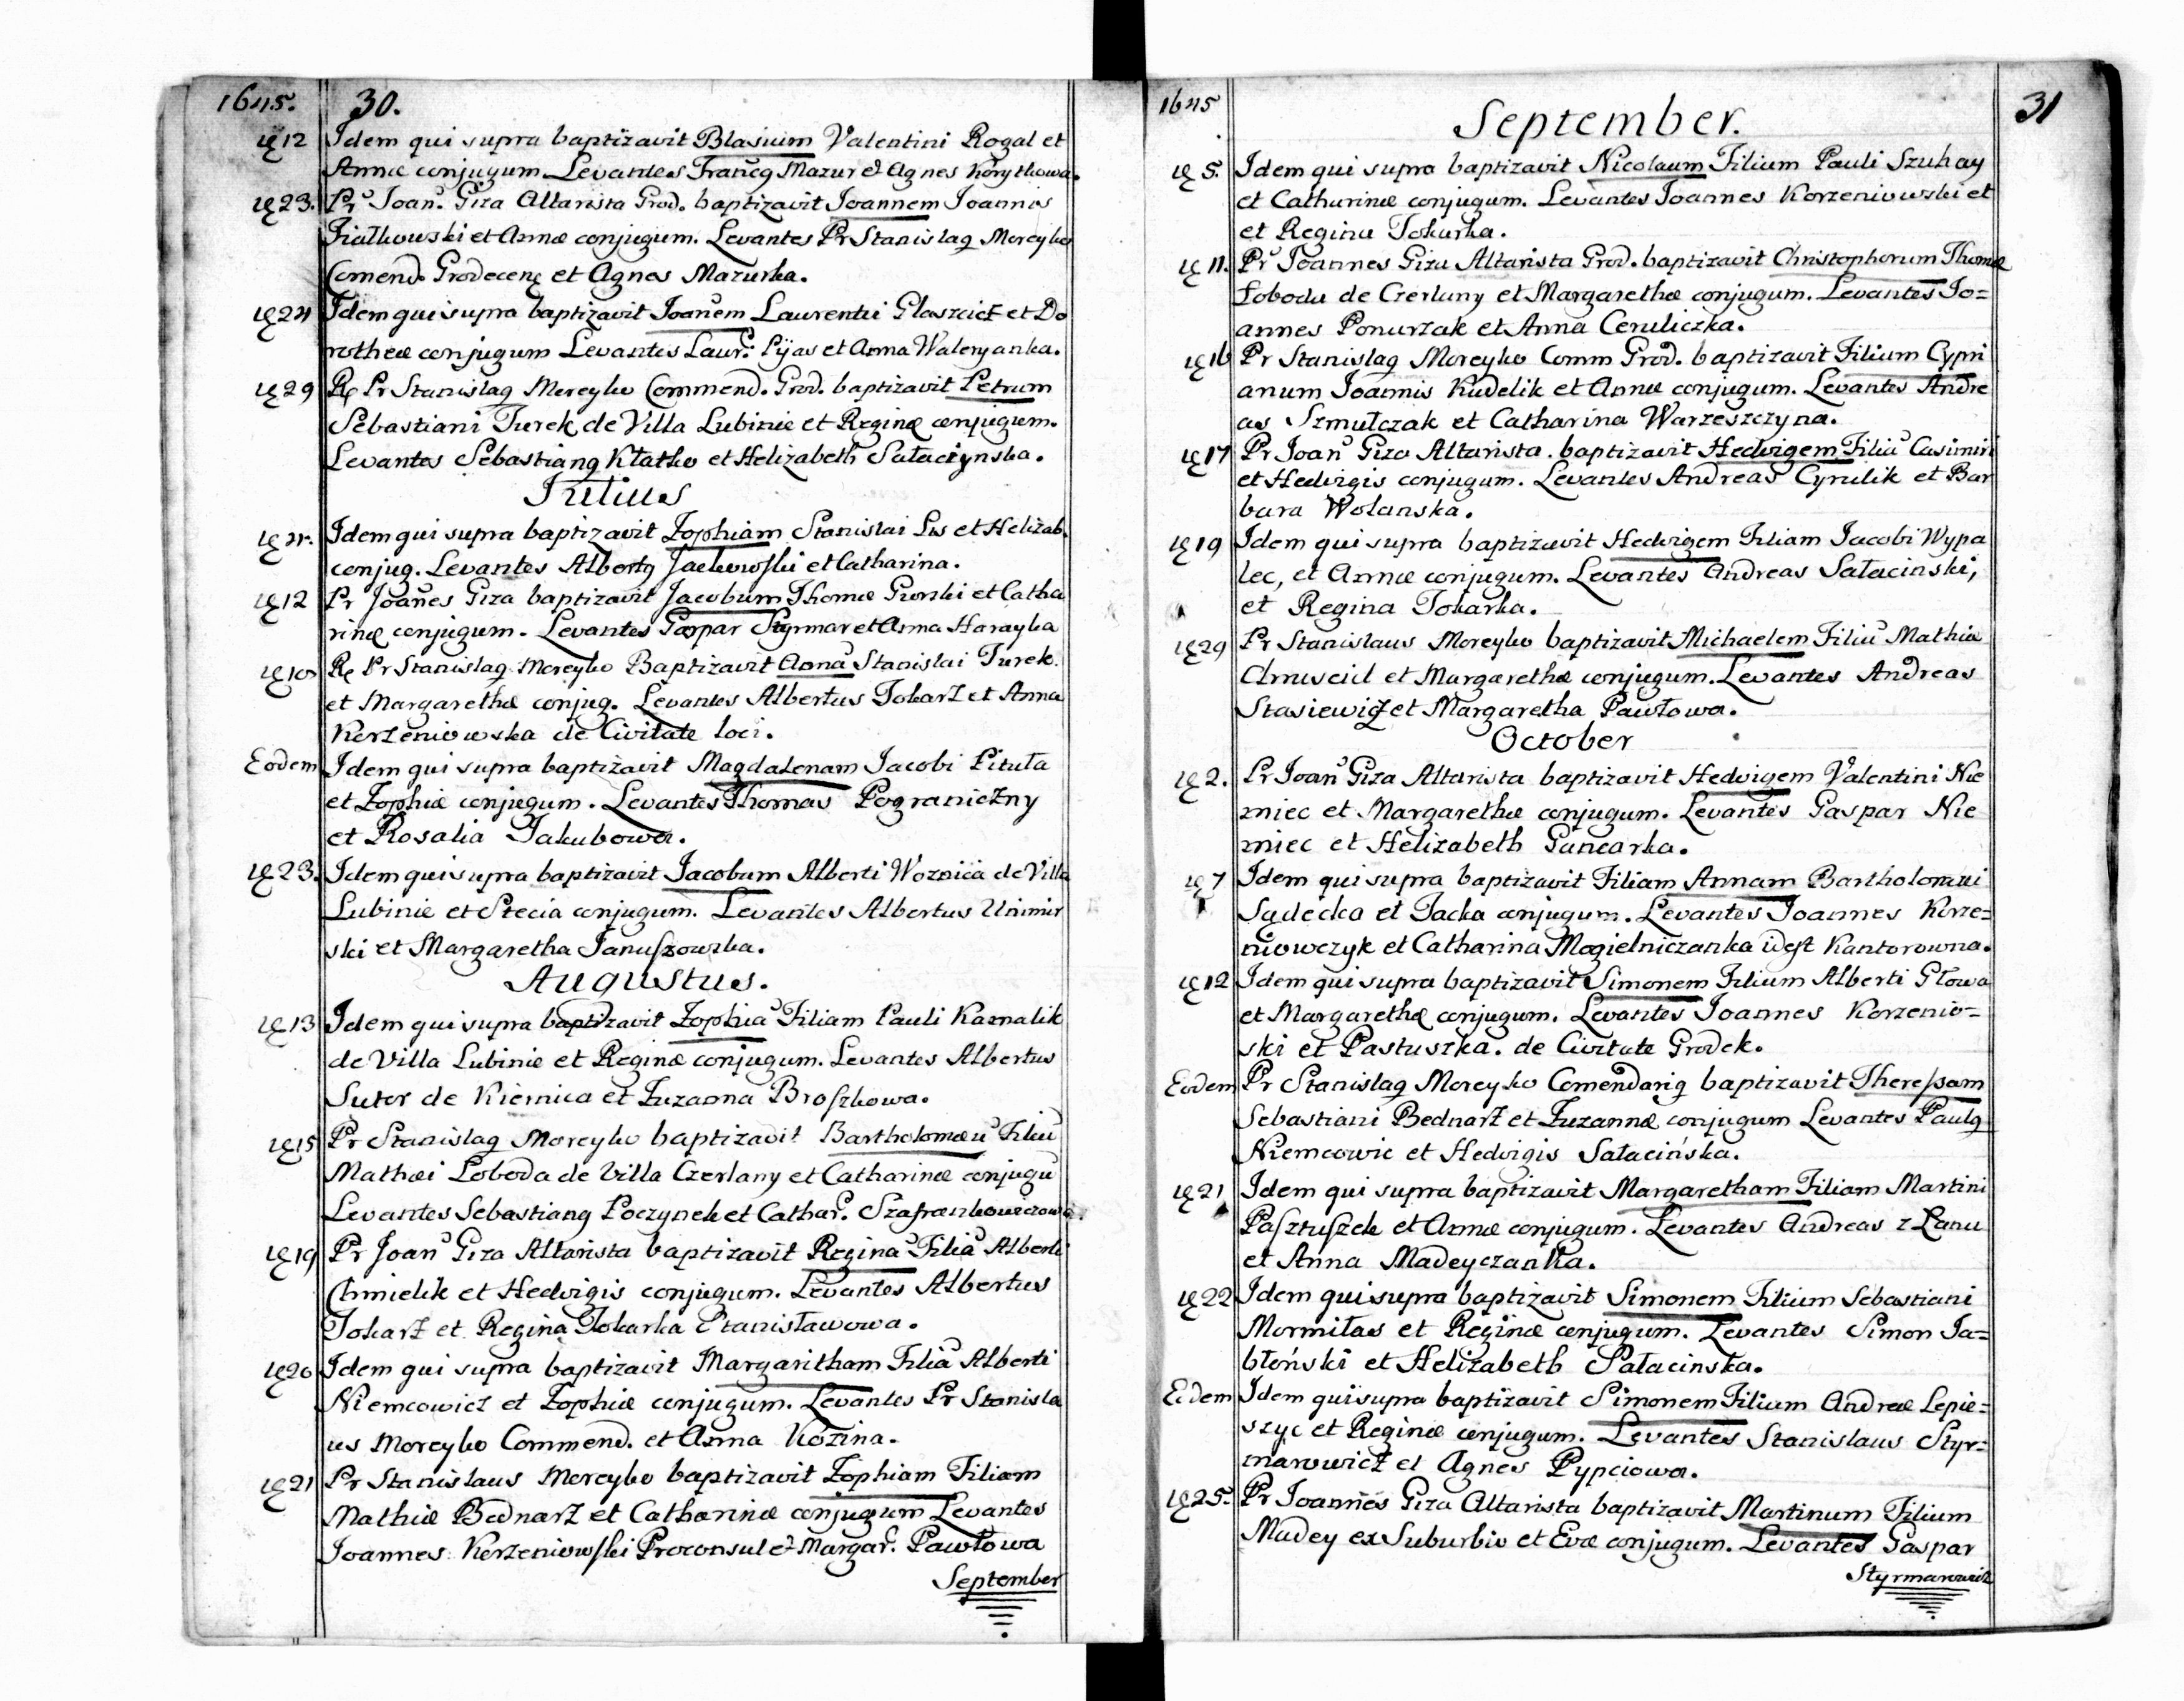 1645. 30.
12 Idem qui supra baptizavit Blasium Valentini Rogal et
Annæ conjugum Levantes Francq Mazur et Agnes Korytkowa.
23. Pr Joan. Giza Altarista Grod. baptizavit Joannem Joannis
Fiałkowski et Annæ conjugum. Levantes Pr Stanislaq Moreyko
Comend. Grodecenq et Agnes Mazurka.
24 Idem qui supra baptizavit Joañem Laurentii Glaszcicz et Do
rotheæ conjugum Levantes Laur: Pijas et Anna Waleryanka.
29 R Pr Stanislaq Moreyko Commend. Grod. baptizavit Petrum
Sebastiani Turek de Villa Lubinie et Reginæ conjugum.
Levantes Sebastianq Kłatko et Helizabeth Sałacinska.
Julius
4. Idem qui supra baptizavit Zophiam Stanislai Lis et Helizab.
conjug. Levantes Albertq Jackowski et Catharina.
12 Pr Joañes Giza baptizavit Jacobum Thomæ Gurski et Catha
rinæ conjugum. Levantes Gaspar Styrmar et Anna Harayka
10 R Pr Stanislaq Moreyko Baptizavit Annã Stanislai Turek.
et Margarethæ conjug. Levantes Albertus Tokarz et Anna
Korzeniowska de Civitate loci.
Eodem Idem qui supra baptizavit Magdalenam Jacobi Pituła
et Zophiæ conjugum. Levantes Thomas Pograniczny
et Rosalia Jakubowa.
23. Idem qui supra baptizavit Jacobum Alberti Woznica de Villa
Lubinie et Stecia conjugum. Levantes Albertus Unimir
ski et Margaretha Januszowska.
Augustus.
13 Idem qui supra baptizavit Zophiã Filiam Pauli Kamalik
de Villa Lubinie et Reginæ conjugum. Levantes Albertus
Sutor de Kiernica et Zuzanna Broszkowa.
15 Pr Stanislaq Moreyko baptizavit Bartholomæũ Filiũ
Mathæi Loboda de Villa Czerlany et Catharinæ conjugũ
Levantes Sebastianq Poczynek et Cathar. Szafrankowczowa.
19 Pr Joan Giza Altarista baptizavit Reginã Filiã Alberti
Chmielik et Hedvigis conjugum. Levantes Albertus
Tokarz et Regina Tokarka Stanisławowa.
20 Idem qui supra baptizavit Margaritham Filiã Alberti
Niemcowicz et Zophiæ conjugum. Levantes Pr Stanisla
us Moreyko Commend. et Anna Kozina.
21 Pr Stanislaus Moreyko baptizavit Zophiam Filiam
Mathiæ Bednarz et Catharinæ conjugum Levantes
Joannes Korzeniowski Proconsul et Margar. Pawłowa
September
1645 31
September.
5. Idem qui supra baptizavit Nicolaum Filium Pauli Szuhay
et Catharinæ conjugum. Levantes Joannes Korzeniowski et
et Regina Tokarka.
11. Pr Joannes Giza Altarista Grod. baptizavit Christophorum Thomæ
Łoboda de Czerlany et Margarethæ conjugum. Levantes Jo=
annes Ponurzak et Anna Ceruliczka.
16 Pr Stanislaq Moreyko Comm Grod. baptizavit Filium Cypri
anum Joannis Kudelik et Annæ conjugum. Levantes Andre
as Szmulczak et Catharina Warzeszczyna.
17 Pr Joan Giza Altarista. baptizavit Hedvigem Filiã Casimiri
et Hedvigis conjugum. Levantes Andreas Cyrulik et Bar
bara Wolanska.
19 Idem qui supra baptizavit Hedvigem Filiam Jacobi Wypa
lec, et Annæ conjugum. Levantes Andreas Sałacinski,
et Regina Tokarka.
29 Pr Stanislaus Moreyko baptizavit Michaelem Filiũ Mathiæ
et Margarethæ conjugum. Levantes Andreas
Stasiewicz et Margaretha Pawłowa.
October
2. Pr Joan Giza Altarista baptizavit Hedvigem Valentini Nie
miec et Margarethæ conjugum. Levantes Gaspar Nie
miec et Helizabeth Gancarka.
7 Idem qui supra baptizavit Filiam Annam Bartholomæi
Sądecka et Jacka conjugum. Levantes Joannes Korze=
niowczyk et Catharina Mogielniczanka id est Kantorowna.
12 Idem qui supra baptizavit Simonem Filium Alberti Głowa
et Margarethæ conjugum. Levantes Joannes Korzenio=
ski et Pastuszka. de Civitate Grodek.
Eodem Pr Stanislaq Moreyko Comendariq baptizavit Theressam
Sebastiani Bednarz et Zuzannæ conjugum Levantes Paulq
Niemcowic et Hedvigis Sałacińska.
21 Idem qui supra baptizavit Margaretham Filiam Martini
Pasztuszek et Annæ conjugum. Levantes Andreas z Łanu
et Anna Madeyczanka.
22 Idem qui supra baptizavit Simonem Filium Sebastiani
Mormiłas et Reginæ conjugum. Levantes Simon Ja=
błoński et Helizabeth Sałacinska.
Eodem Idem qui supra baptizavit Simonem Filium Andreæ Lepie=
szyc et Reginæ conjugum. Levantes Stanislaus Styr=
marowicz et Agnes Pypciowa.
25. Pr Joannes Giza Altarista baptizavit Martinum Filium
Madey ex Suburbio et Evæ conjugum. Levantes Gaspar
Styrmarowicz